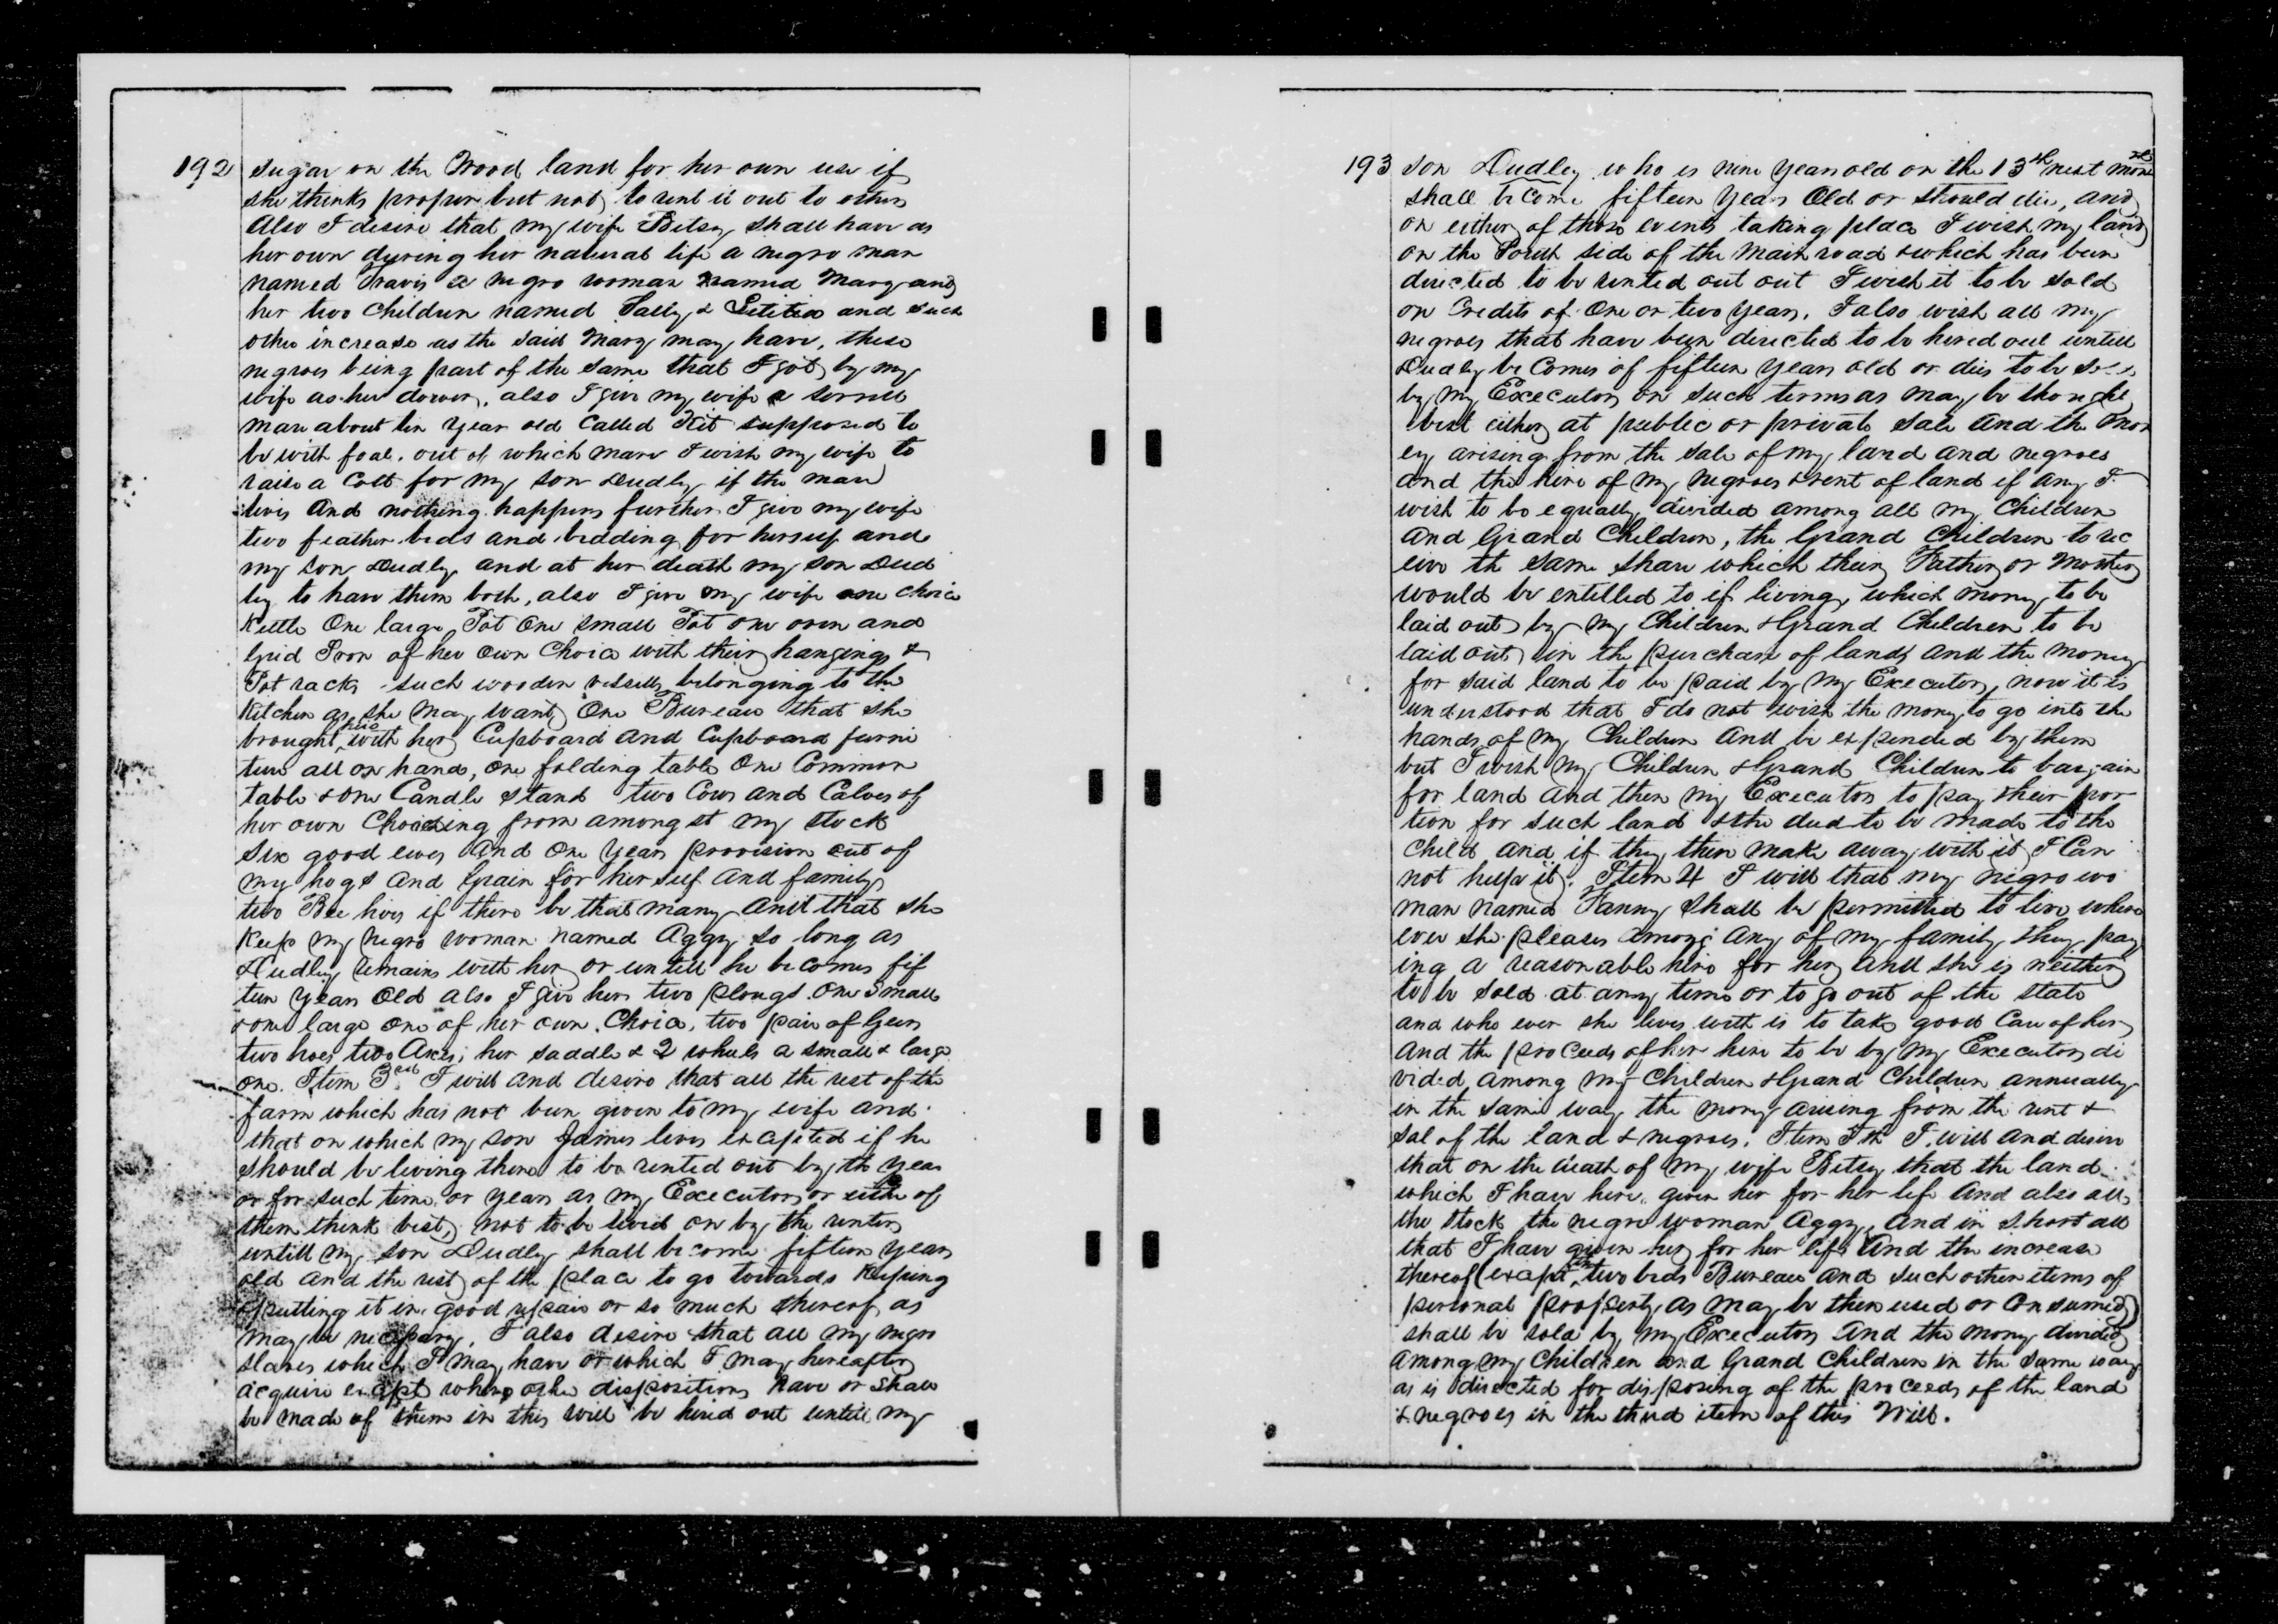 192 sugar on the Wood land for her own use if
she thinks proper but not to rent it out to others
Also I desire that my wife Betsy shall have as
her own during her natural life a negro man
named Travis a negro woman named Mary and
her two Children named Sally & Letitia and such
other increase as the said Mary may have, these
negroes being part of the same that I got by my
wife as her dower, also I give my wife a sorrell
mare about ten year old Called Kit supposed to
be with foal. out of which mare I wish my wife to
raise a Colt for my son Dudley if the mare
lives And nothing happens further I give my wife
two feather beds and bedding for herself and
my son Dudly and at her death my son Dud
ley to have them both, also I give my wife one choice
Kettle One large Pot One small Pot one oven and
Grid Iron of her own Choice with their hangings &
Pot racks such wooden vessells belonging to the
Kitchen as she may want One Bureau that she
brought with her Cupboard and Cupboard furni
ture all on hand, one folding table One Common
table & one Candle stand two Cows and Calves of
her own Choosing from amongst my stock
Six good ewes And One years provision out of
my hogs and Grain for her self and family
two Bee hives if there be that many And that she
Keep my negro woman named Aggy so long as
Dudley remains with her or untill he becomes fif
teen years Old also I give her two plougs One Small
& one large one of her own Choice, two pair of Geers
two hoes two Axes, her saddle & 2 wheels a small & large
one. Item 3rd I will and desire that all the rest of the
farm which has not been given to my wife and
that on which my son James lives excepted if he
should be living there to be rented out by the year
or for such time or years as my Executors or either of
them think best, not to be lived on by the renters
untill my son Dudley shall become fifteen years
old and the rest of the place to go towards Keeping
& putting it in good repair or so much thereof as
may be necessary. I also desire that all my negro
slaves which I may have or which I may hereafter
acquire except where other dispositions have or shall
be made of them in this will be hired out untill my
193 son Dudley who is nine years old on the 13th next month
shall become fifteen years Old or should die, and
on either of those events taking place I wish my land
on the South side of the main road & which has been
directed to be rented out out I wish it to be sold
on Credits of One or two years. I also wish all my
negroes that have been directed to be hired out untill
Dudly be Comes of fifteen years old or dies to be
by my Executors on such terms as may be thought
best either at public or private sale and the mon
ey arising from the sale of my land and negroes
and the hire of my negroes & rent of land if any I
wish to be equally divided among all my Children
and Grand Children, the Grand Children to rec
eive the same share which their Father or Mother
would be entitled to if living, which money to be
laid out by my Children & Grand Children to be
laid out in the purchase of lands and the money
for said land to be paid by my Executors, now it is
understood that I do not wish the money to go into the
hands of my Children And be expended by them
but I wish my Children & Grand Children to bargain
for land and then my Executors to pay their por
tion for such land & the deed to be made to the
Child and if they then make away with it I Can
not help it. Item 4 I will that my negro wo
man named Fanny shall be permitted to live where
ever she pleases among any of my family they pay
ing a reasonable hire for her and she is neither
to be sold at any time or to go out of the state
and who ever she lives with is to take good Care of her
and the proceeds of her hire to be by my Executors di
vided among my Children & Grand Children annually
in the same way the money arising from the rent &
sal of the land & negroes. Item 5th I will and desire
that on the death of my wife Betsy that the land
which I have here given her for her life and also all
the stock the negro woman Aggy, And in short all
that I have given her for her life And the increase
thereof (except two beds Bureau and such other items of
personal property as may be then used or Consumed)
shall be sold by my Executors and the money divided
among my Children and Grand Children in the same way
as is directed for disposing of the proceeds of the land
& negroes in the third item of this Will.